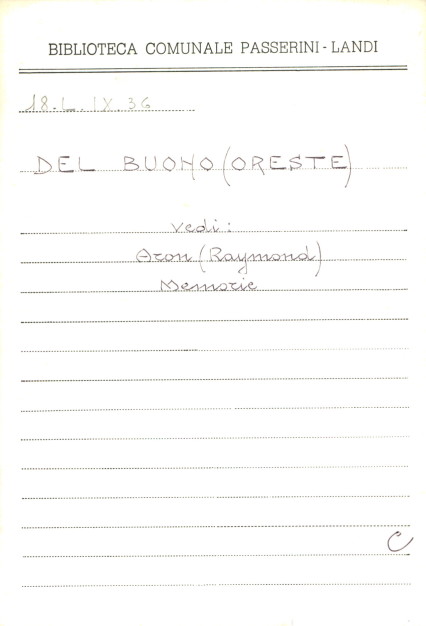 BIBLIOTECA COMUNALE PASSERINI - LANDI
18.L.IX.36
DEL BUONO (ORESTE)
Vedi:
Aron (Raymond)
Memorie
C